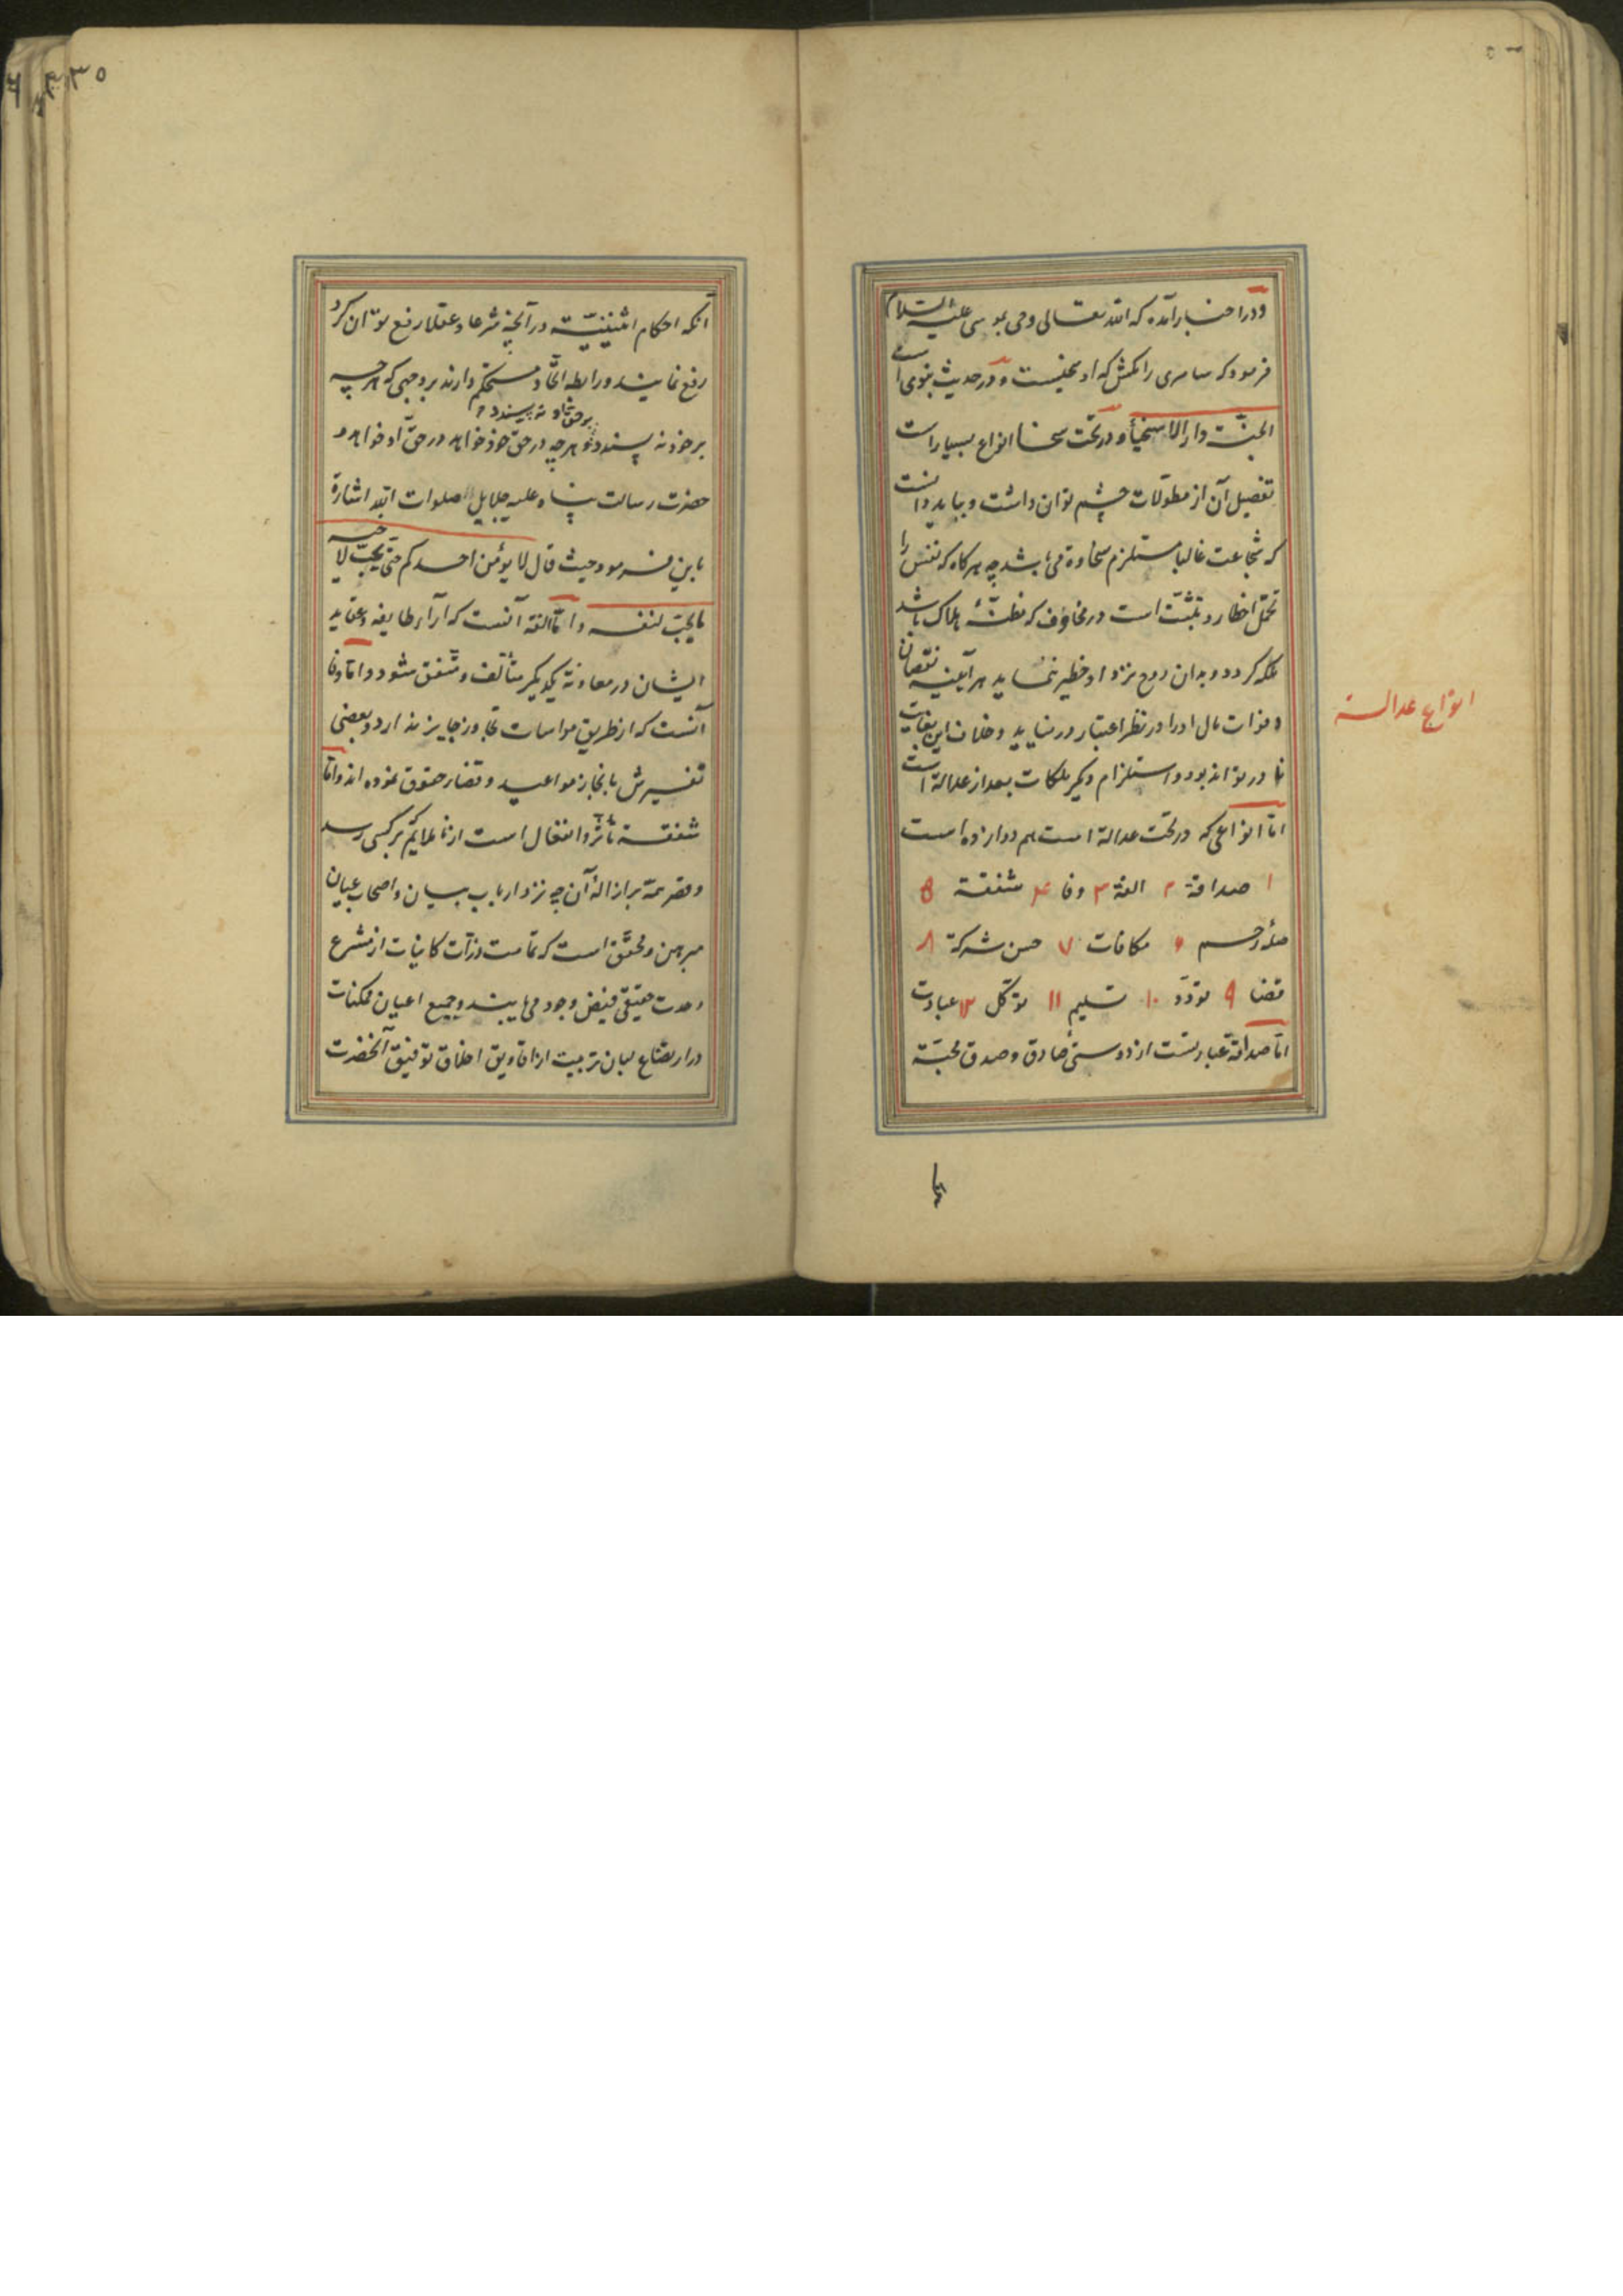 و در اخبار آمده که الله تعالی وحی بموسی علیه السلام
فرمود که سامری را مکش که او سخیست و در حدیث نبوی است
الجنّة دار الاسخیاء و در تحت سخا انواع بسیار است
تفصیل آن از مطولات چشم توان داشت و بباید دانست
که شجاعت غالبا مستلزم سخاوة می باشد چه هرکاه که نفس را
تحمّل اخطار و تثبّت است در مخاوف که مظنّهٔ هلاک باشد
ملکه کردد و بدان روح نزد او خطیر ننماید هر آینه نقصان
و فوات مال او را در نظر اعتبار در نیاید و خلاف این بغایت
نادر تواند بود و استلزام دیکر ملکات بعد از عدالة است
امّا انواعی که در تحت عدالة است هم دوازده است
۱ صداقة ۲ الفة ۳ وفا ۴ شفقة ۵
صلهٔ رحم ۶ مکافات ۷ حسن شرکة ۸
قضا ۹ تودّد ۱۰ تسلیم ۱۱ توکّل ۱۲ عبادت
امّا صداقة عبارتست از دوستیٔ صادق و صدق محبّة
انواع عدالة
۳۵
آنکه احکام اثنینیّة در آنچه شرعا و عقلا رفع توان کرد
رفع نمایند و رابطه اتّحاد مستحکم دارند بر وجهی که هر چه
بر خود نه پسندد
و هر چه در حق خود خواهد در حقّ او خواهد و
حضرت رسالت پناه علیه جلایل الصلوات الله اشارة
باین فرمود حیث قال لا یؤمن احدکم حتّی یحبّ لاخیه
ما یحبّ لنفسه و امّا الفة آنست که آراء طایفه و عقاید
ایشان در معاونة یکدیکر متألّف و متّفق شود و امّا وفا
آنست که از طریق مواسات تجاوز جایز ندارد و بعضی
تفسیرش بانجاز مواعید و قضاء حقوق نموده اند و امّا
شفقة تأثّر و انفعال است از ناملایم که بر کسی رسد
و قصر همّة بر ازالهٔ آن چه نزد ارباب بیان و اصحاب عیان
مبرهن و محقّق است که تمامت ذرّات کاینات از مشرع
وحدت حقیقی فیض وجود می یابند و جمیع اعیان ممکنات
در ارتضاع لبان تربیت از افاویق اخلاق توفیق آنحضرت